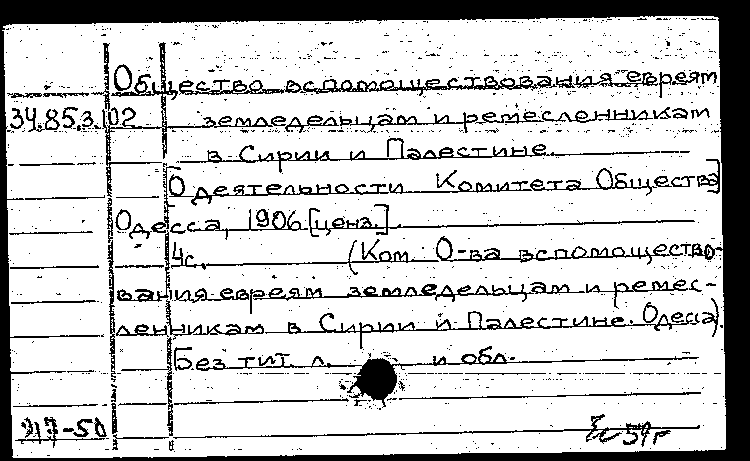 Общество вспомоществования евреям
34.85.3.102 земледельцам и ремесленникам
в Сирии и Палестине.
[О деятельности Комитета Общества]
Одесса, 1906. [ценз.].
4с. (Ком. О-ва вспомощество-
вания евреям земледельцам и ремес-
ленникам в Сирии и Палестине. Одесса).
Без тит. л. и обл.
217-50 59г